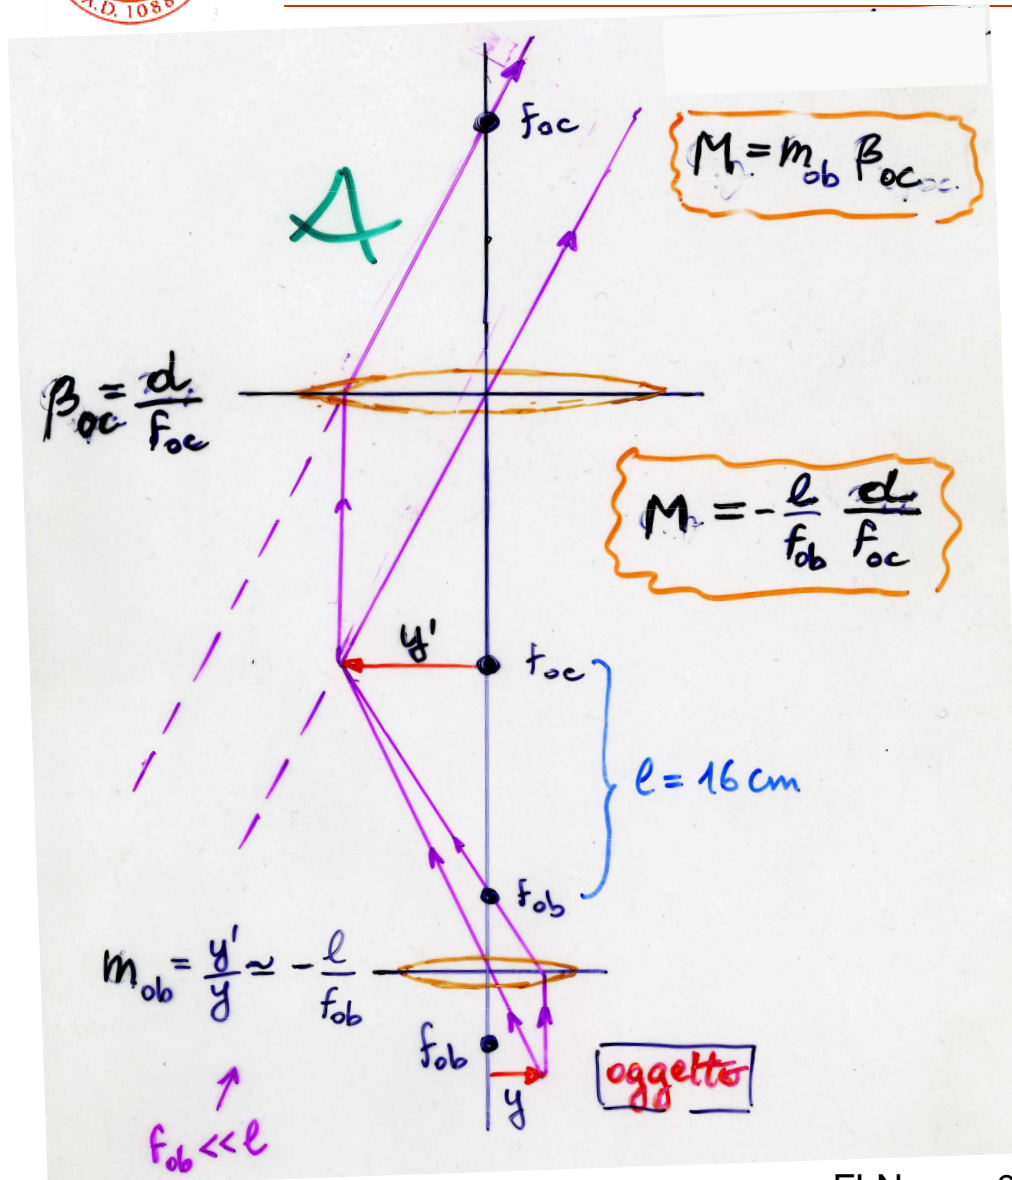 A.D. 1088
f_oc
M = m_ob β_oc
β_oc = d / f_oc
M = - l / f_ob d / f_oc
y'
f_oc
l = 16 cm
f_ob
m_ob = y' / y ≃ - l / f_ob
f_ob
oggetto
y
f_ob << l